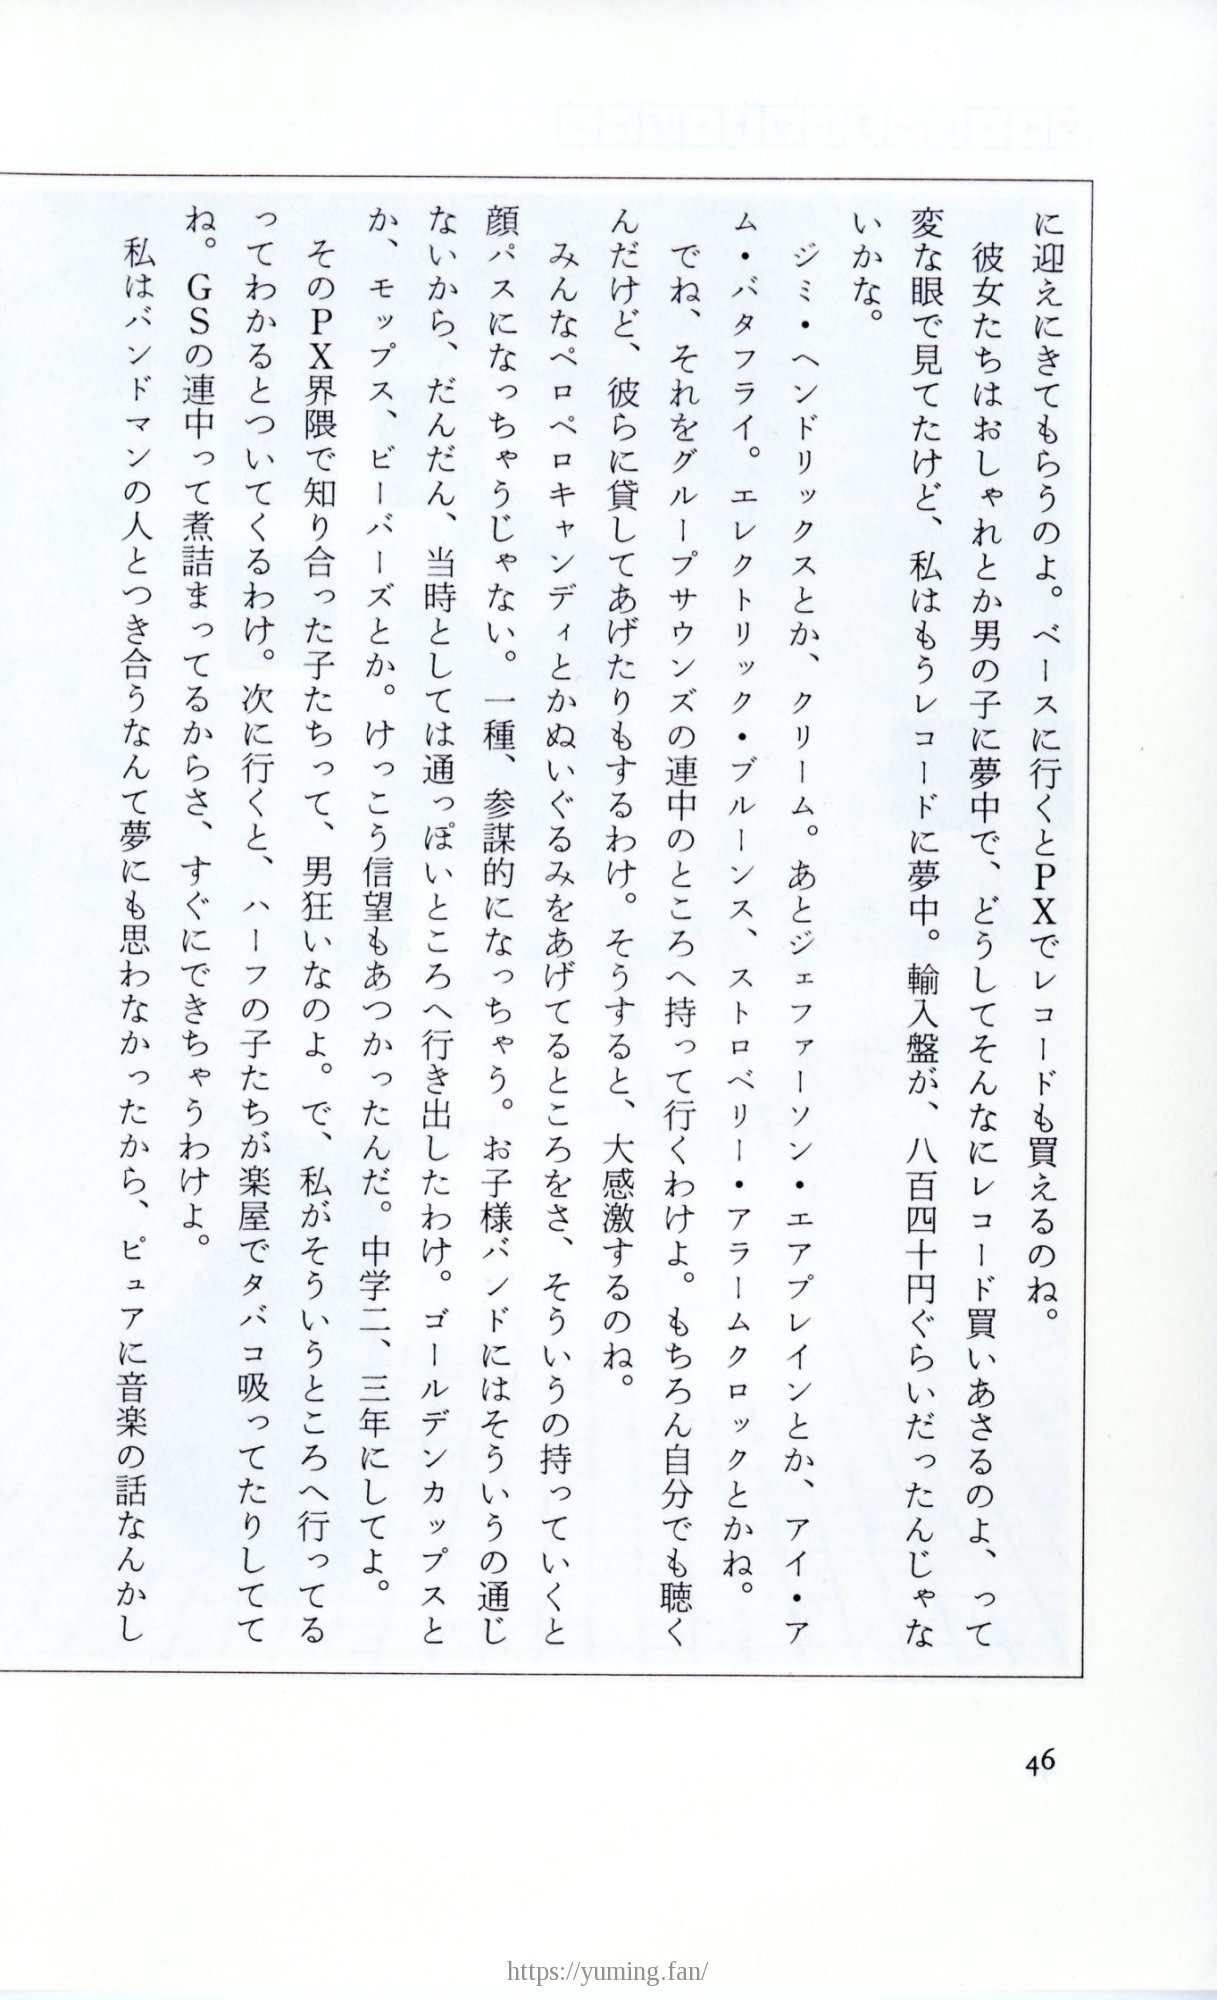 に迎えにきてもらうのよ。ベースに行くとPXでレコードも買えるのね。
彼女たちはおしゃれとか男の子に夢中で、どうしてそんなにレコード買いあさるのよ、って
変な眼で見てたけど、私はもうレコードに夢中。輸入盤が、八百四十円ぐらいだったんじゃな
いかな。
ジミ・ヘンドリックスとか、クリーム。あとジェファーソン・エアプレインとか、アイ・ア
ム・バタフライ。エレクトリック・プルーンス、ストロベリー・アラームクロックとかね。
でね、それをグループサウンズの連中のところへ持って行くわけよ。もちろん自分でも聴く
んだけど、彼らに貸してあげたりもするわけ。そうすると、大感激するのね。
みんなペロペロキャンディとかぬいぐるみをあげてるところをさ、そういうの持っていくと
顔パスになっちゃうじゃない。一種、参謀的になっちゃう。お子様バンドにはそういうの通じ
ないから、だんだん、当時としては通っぽいところへ行き出したわけ。ゴールデンカップスと
か、モップス、ビーバーズとか。けっこう信望もあつかったんだ。中学二、三年にしてよ。
そのPX界隈で知り合った子たちって、男狂いなのよ。で、私がそういうところへ行ってる
ってわかるとついてくるわけ。次に行くと、ハーフの子たちが楽屋でタバコ吸ってたりしてて
ね。GSの連中って煮詰まってるからさ、すぐにできちゃうわけよ。
私はバンドマンの人とつき合うなんて夢にも思わなかったから、ピュアに音楽の話なんかし
46
https://yuming.fan/